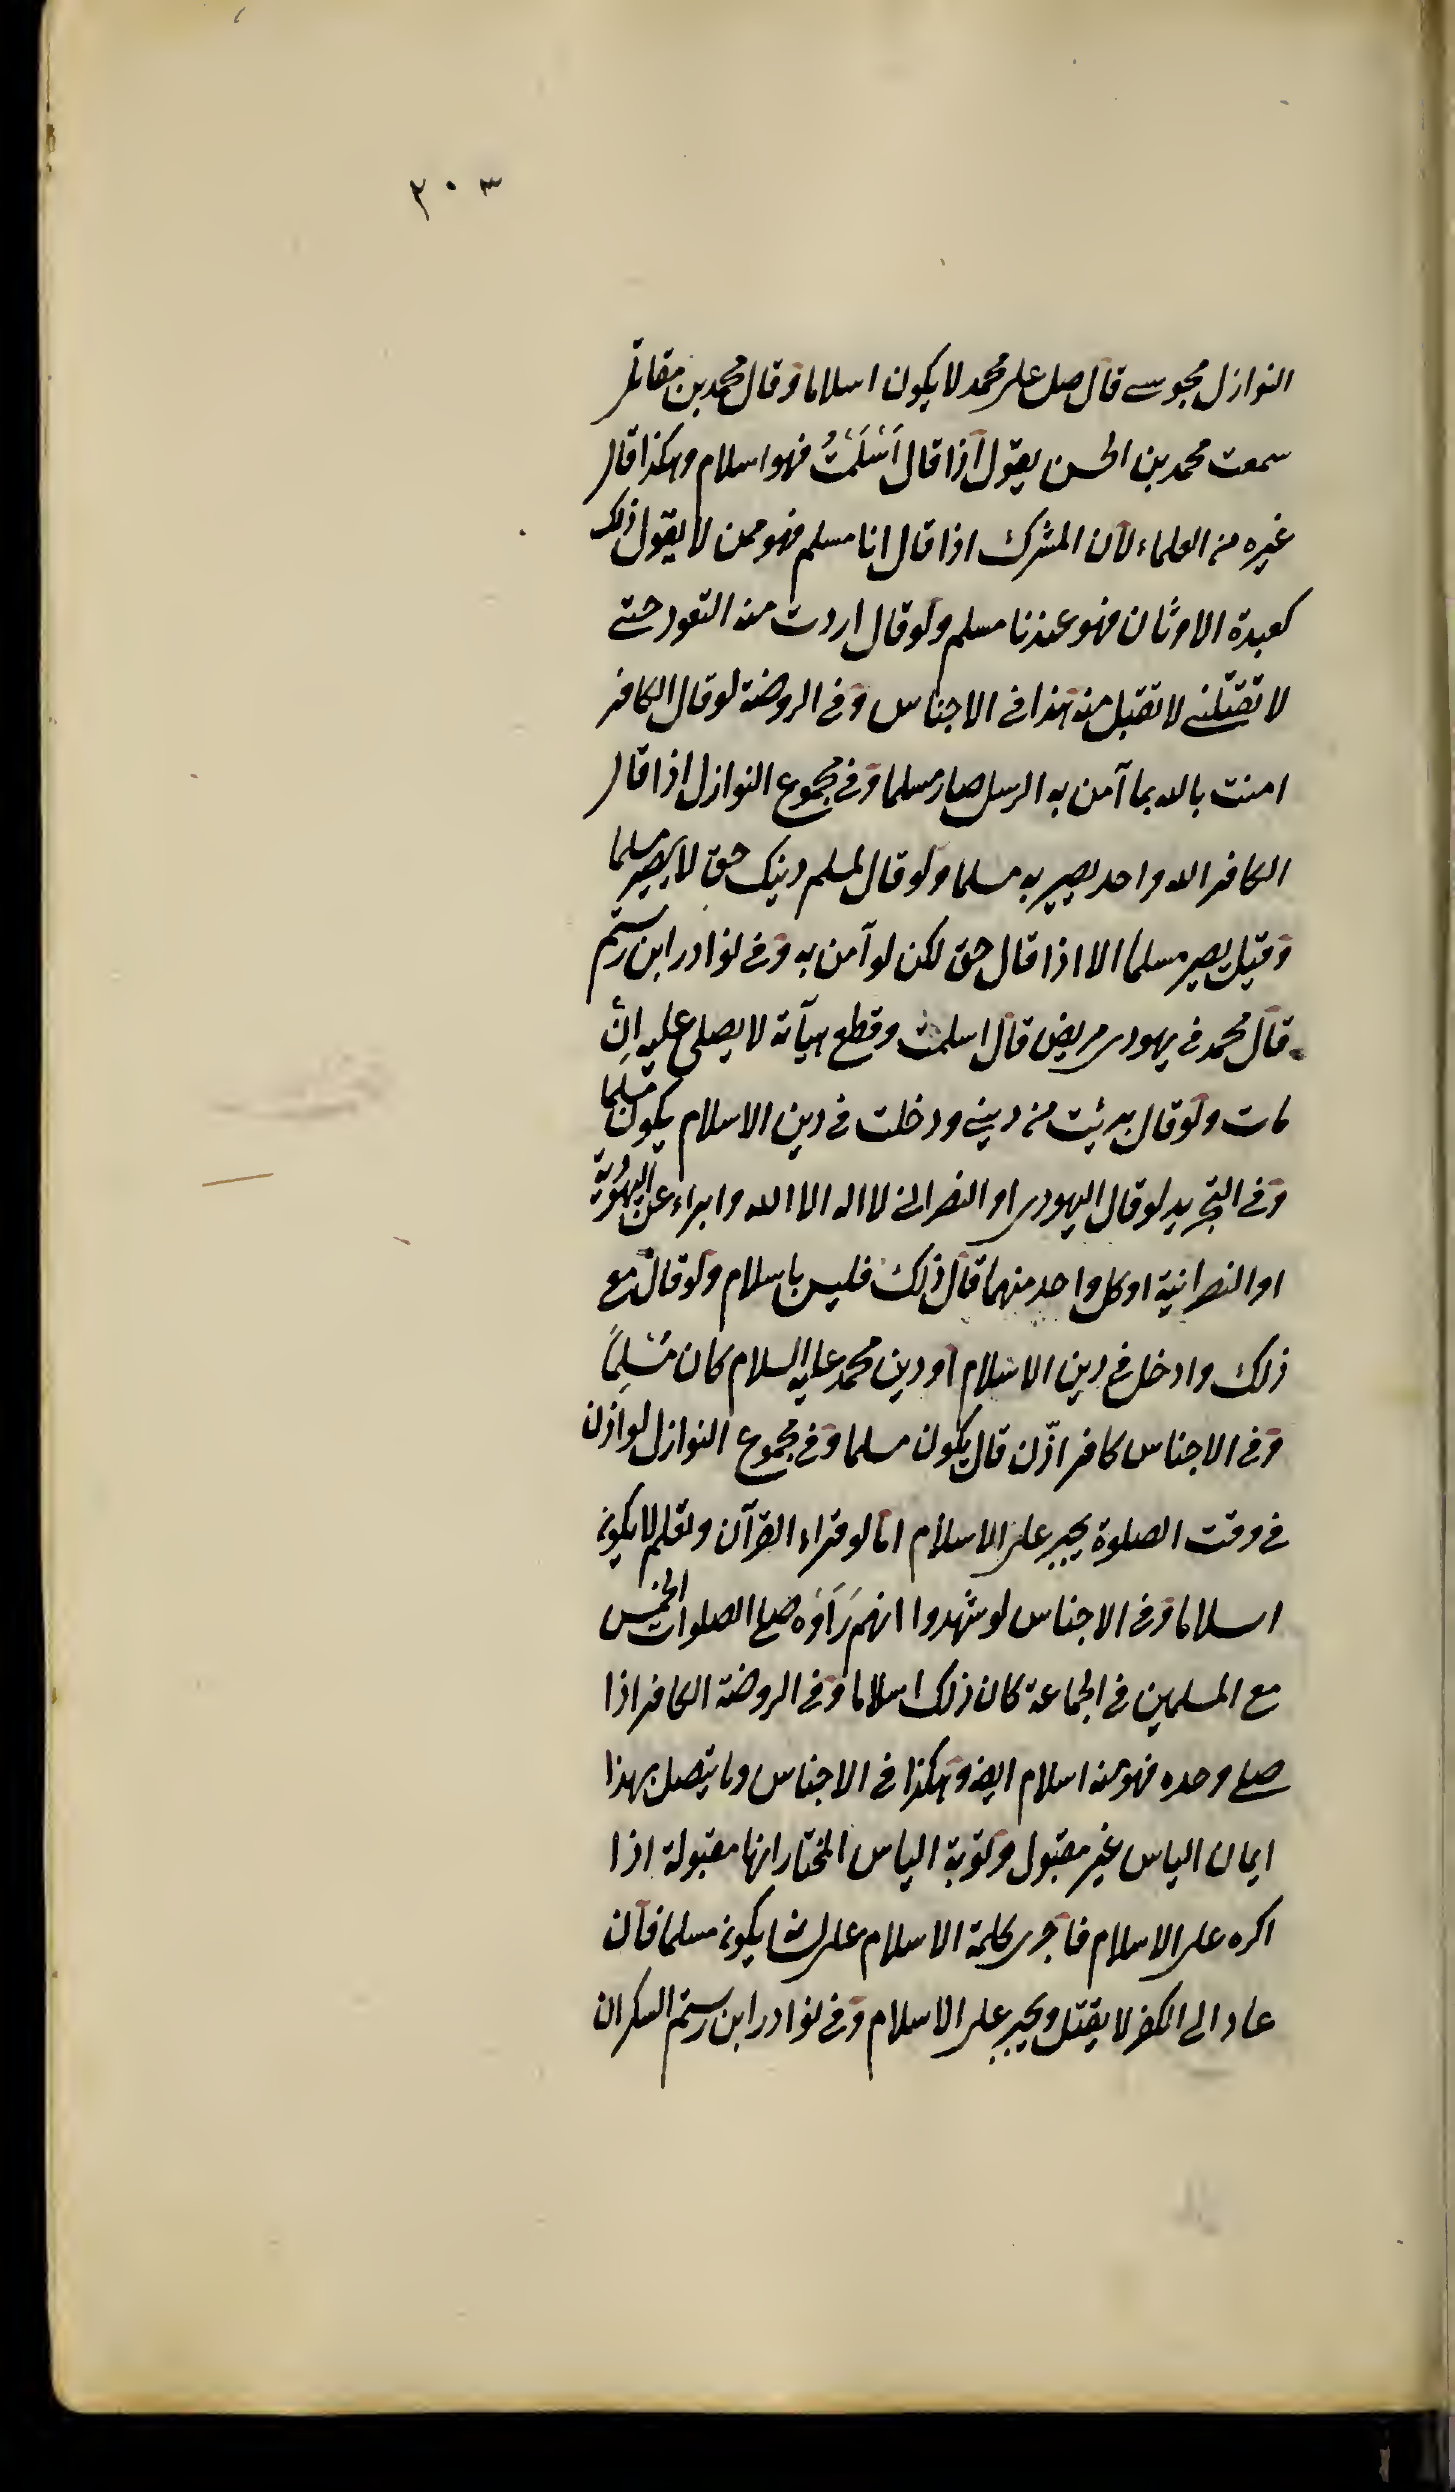 ٢٠٣
النوازل مجوسے قال صل على محمد لا يكون اسلاما وقال محمد بن مقاتل
سمعت محمد بن الحسن يقول اذا قال اَسْلَمْتُ فهو اسلام وهكذا قال
غيره من العلماء لان المشرك اذا قال انا مسلم فهو ممن لا يقول ذلك
كعبدة الاوثان فهو عندنا مسلم ولو قال اردت منه التعود حتے
لا تقتلنے لا تقبل منه هذا فے الاجناس وفے الروضة لو قال الكافر
امنت بالله بما آمن به الرسل صار مسلما وفے مجموع النوازل اذا قال
الكافر الله واحد يصير به مسلما ولو قال لمسلم دينك حق لا يصير مسلما
وقيل يصير مسلما الا اذا قال حق لكن لو آمن به وفے نوادر ابن رستم
قال محمد فے يهودى مريض قال اسلمت وقطع هيآته لا يصلى عليه اِنْ
مات ولو قال برئيت من دينے ودخلت فے دين الاسلام يكون مسلما
وفے التجريد لو قال اليهودى او النصرانے لا اله الا الله وابراء عن اليهودية
او النصرانية او كل واحد منهما قال ذلك فليس باسلام ولو قال مع
ذلك وادخل فے دين الاسلام او دين محمد عليه السلام كان مُسْلِماً
وفے الاجناس كافر اذّن قال يكون مسلما وفے مجموع النوازل لو اذن
فے وقت الصلوة يجبر على الاسلام اما لو قراء القرآن وتعلم لا يكون
اسلاما وفے الاجناس لو شهدوا انهم رَاَوْه صلے الصلوات الخمس
مع المسلمين فے الجماعة كان ذلك اسلاما وفے الروضة الكافر اذا
صلے وحده فهو منه اسلام ايضه وهكذا فے الاجناس وما يتصل بهذا
ايمان الياس غير مقبول وتوبة الياس المختار انها مقبولة اذا
اكره على الاسلام فاجرى كلمة الاسلام على لسانه يكون مسلما فان
عاد الى الكفر لا يقتل ويجبر على الاسلام وفے نوادر ابن رستم السكران